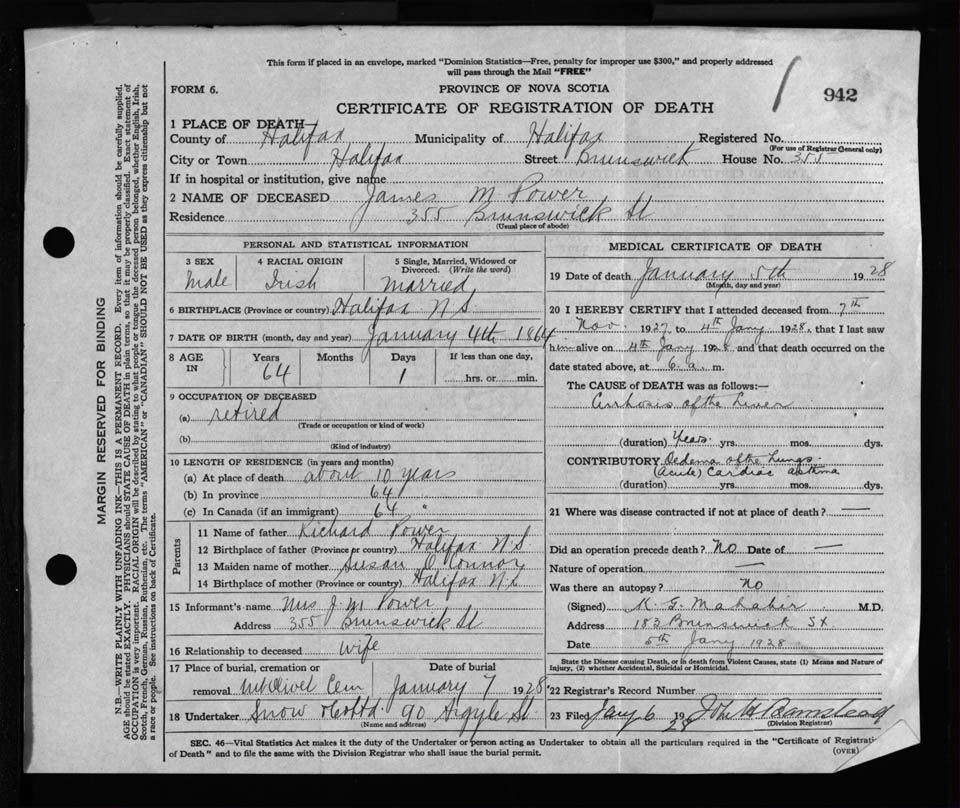 This form if placed in an envelope, marked "Dominion Statistics—Free, penalty for improper use $300," and properly addressed
will pass through the Mail "FREE"
FORM 6.
PROVINCE OF NOVA SCOTIA
942
CERTIFICATE OF REGISTRATION OF DEATH
1 PLACE OF DEATH
County of Halifax Municipality of Halifax Registered No.
(For use of Registrar General only)
City or Town Halifax Street Brunswick House No. 355
If in hospital or institution, give name
2 NAME OF DECEASED James M Power
Residence 355 Brunswick St
(Usual place of abode)
PERSONAL AND STATISTICAL INFORMATION
3 SEX 4 RACIAL ORIGIN 5 Single, Married, Widowed or
Divorced. (Write the word)
Male Irish Married
6 BIRTHPLACE (Province or country) Halifax N S
7 DATE OF BIRTH (month, day and year) January 4th 1864
8 AGE IN Years Months Days If less than one day,
64 1 hrs. or min.
9 OCCUPATION OF DECEASED
(a) retired
(Trade or occupation or kind of work)
(b)
(Kind of industry)
10 LENGTH OF RESIDENCE (in years and months)
(a) At place of death about 10 years
(b) In province 64 "
(c) In Canada (if an immigrant) 64 "
Parents
11 Name of father Richard Power
12 Birthplace of father (Province or country) Halifax N.S
13 Maiden name of mother Susan O Connor
14 Birthplace of mother (Province or country) Halifax N.S
15 Informant's name Mrs J. M Power
Address 355 Brunswick St
16 Relationship to deceased wife
17 Place of burial, cremation or Date of burial
removal Mt Olivet Cem January 7 1928
18 Undertaker Snow & Co Ltd 90 Argyle St.
(Name and address)
MEDICAL CERTIFICATE OF DEATH
19 Date of death January 5th 1928
(Month, day and year)
20 I HEREBY CERTIFY that I attended deceased from 7th
Nov. 1927 to 4th Jany 1928, that I last saw
him alive on 4th Jany 1928 and that death occurred on
date stated above, at 6 a. m.
The CAUSE OF DEATH was as follows:—
Cirrhosis of the Liver
(duration) Years. yrs. mos. dys.
CONTRIBUTORY Oedema of the Lungs
(acute) Cardiac asthma
(duration) yrs. mos. dys.
21 Where was disease contracted if not at place of death? —
Did an operation precede death? No Date of —
Nature of operation —
Was there an autopsy? No
(Signed) K. G. Mahabir M.D.
Address 183 Brunswick St
Date 5th Jany 1928
State the Disease causing Death, or in death from Violent Causes, state (1) Means and Nature of
Injury, (2) whether Accidental, Suicidal or Homicidal.
22 Registrar's Record Number
23 Filed Jany 6 1928
(Division Registrar)
SEC. 46—Vital Statistics Act makes it the duty of the Undertaker or person acting as Undertaker to obtain all the particulars required in the "Certificate of Registration
of Death" and to file the same with the Division Registrar who shall issue the burial permit.
(OVER)
MARGIN RESERVED FOR BINDING
N.B.—WRITE PLAINLY WITH UNFADING INK—THIS IS A PERMANENT RECORD. Every item of information should be carefully supplied.
AGE should be stated EXACTLY. PHYSICIANS should STATE CAUSE OF DEATH in plain terms, so that it may be properly classified. Exact statement of
OCCUPATION is very important. RACIAL ORIGIN will be described by stating to what people or tongue the deceased person belonged, whether English, Irish,
Scotch, French, German, Russian, Ruthenian, etc. The terms "AMERICAN" or "CANADIAN" SHOULD NOT BE USED as they express citizenship but not
a race or people. See instructions on back of Certificate.